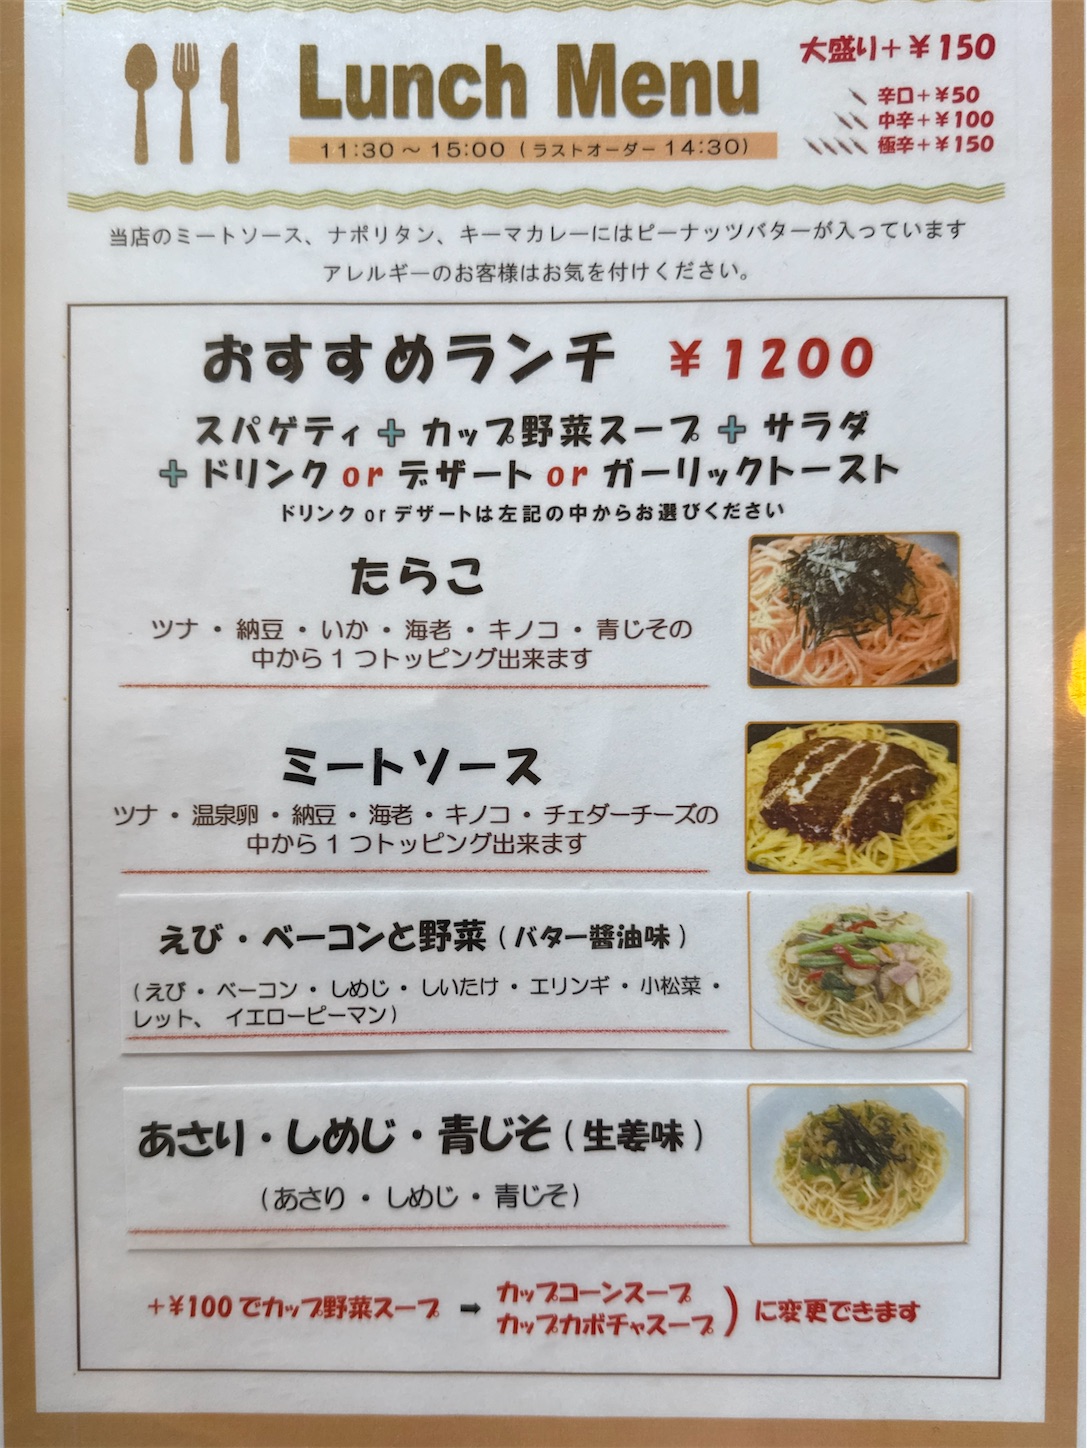 Lunch Menu
11:30～15:00（ラストオーダー14:30）
大盛り＋￥150
辛口＋￥50
中辛＋￥100
極辛＋￥150
当店のミートソース、ナポリタン、キーマカレーにはピーナッツバターが入っています
アレルギーのお客様はお気を付けください。
おすすめランチ ￥1200
スパゲティ＋カップ野菜スープ＋サラダ
＋ドリンク or デザート or ガーリックトースト
ドリンク or デザートは左記の中からお選びください
たらこ
ツナ・納豆・いか・海老・キノコ・青じその
中から１つトッピング出来ます
ミートソース
ツナ・温泉卵・納豆・海老・キノコ・チェダーチーズの
中から１つトッピング出来ます
えび・ベーコンと野菜（バター醬油味）
（えび・ベーコン・しめじ・しいたけ・エリンギ・小松菜・
レット、イエローピーマン）
あさり・しめじ・青じそ（生姜味）
（あさり・しめじ・青じそ）
＋￥100でカップ野菜スープ ➡ カップコーンスープ
カップカボチャスープ ）に変更できます